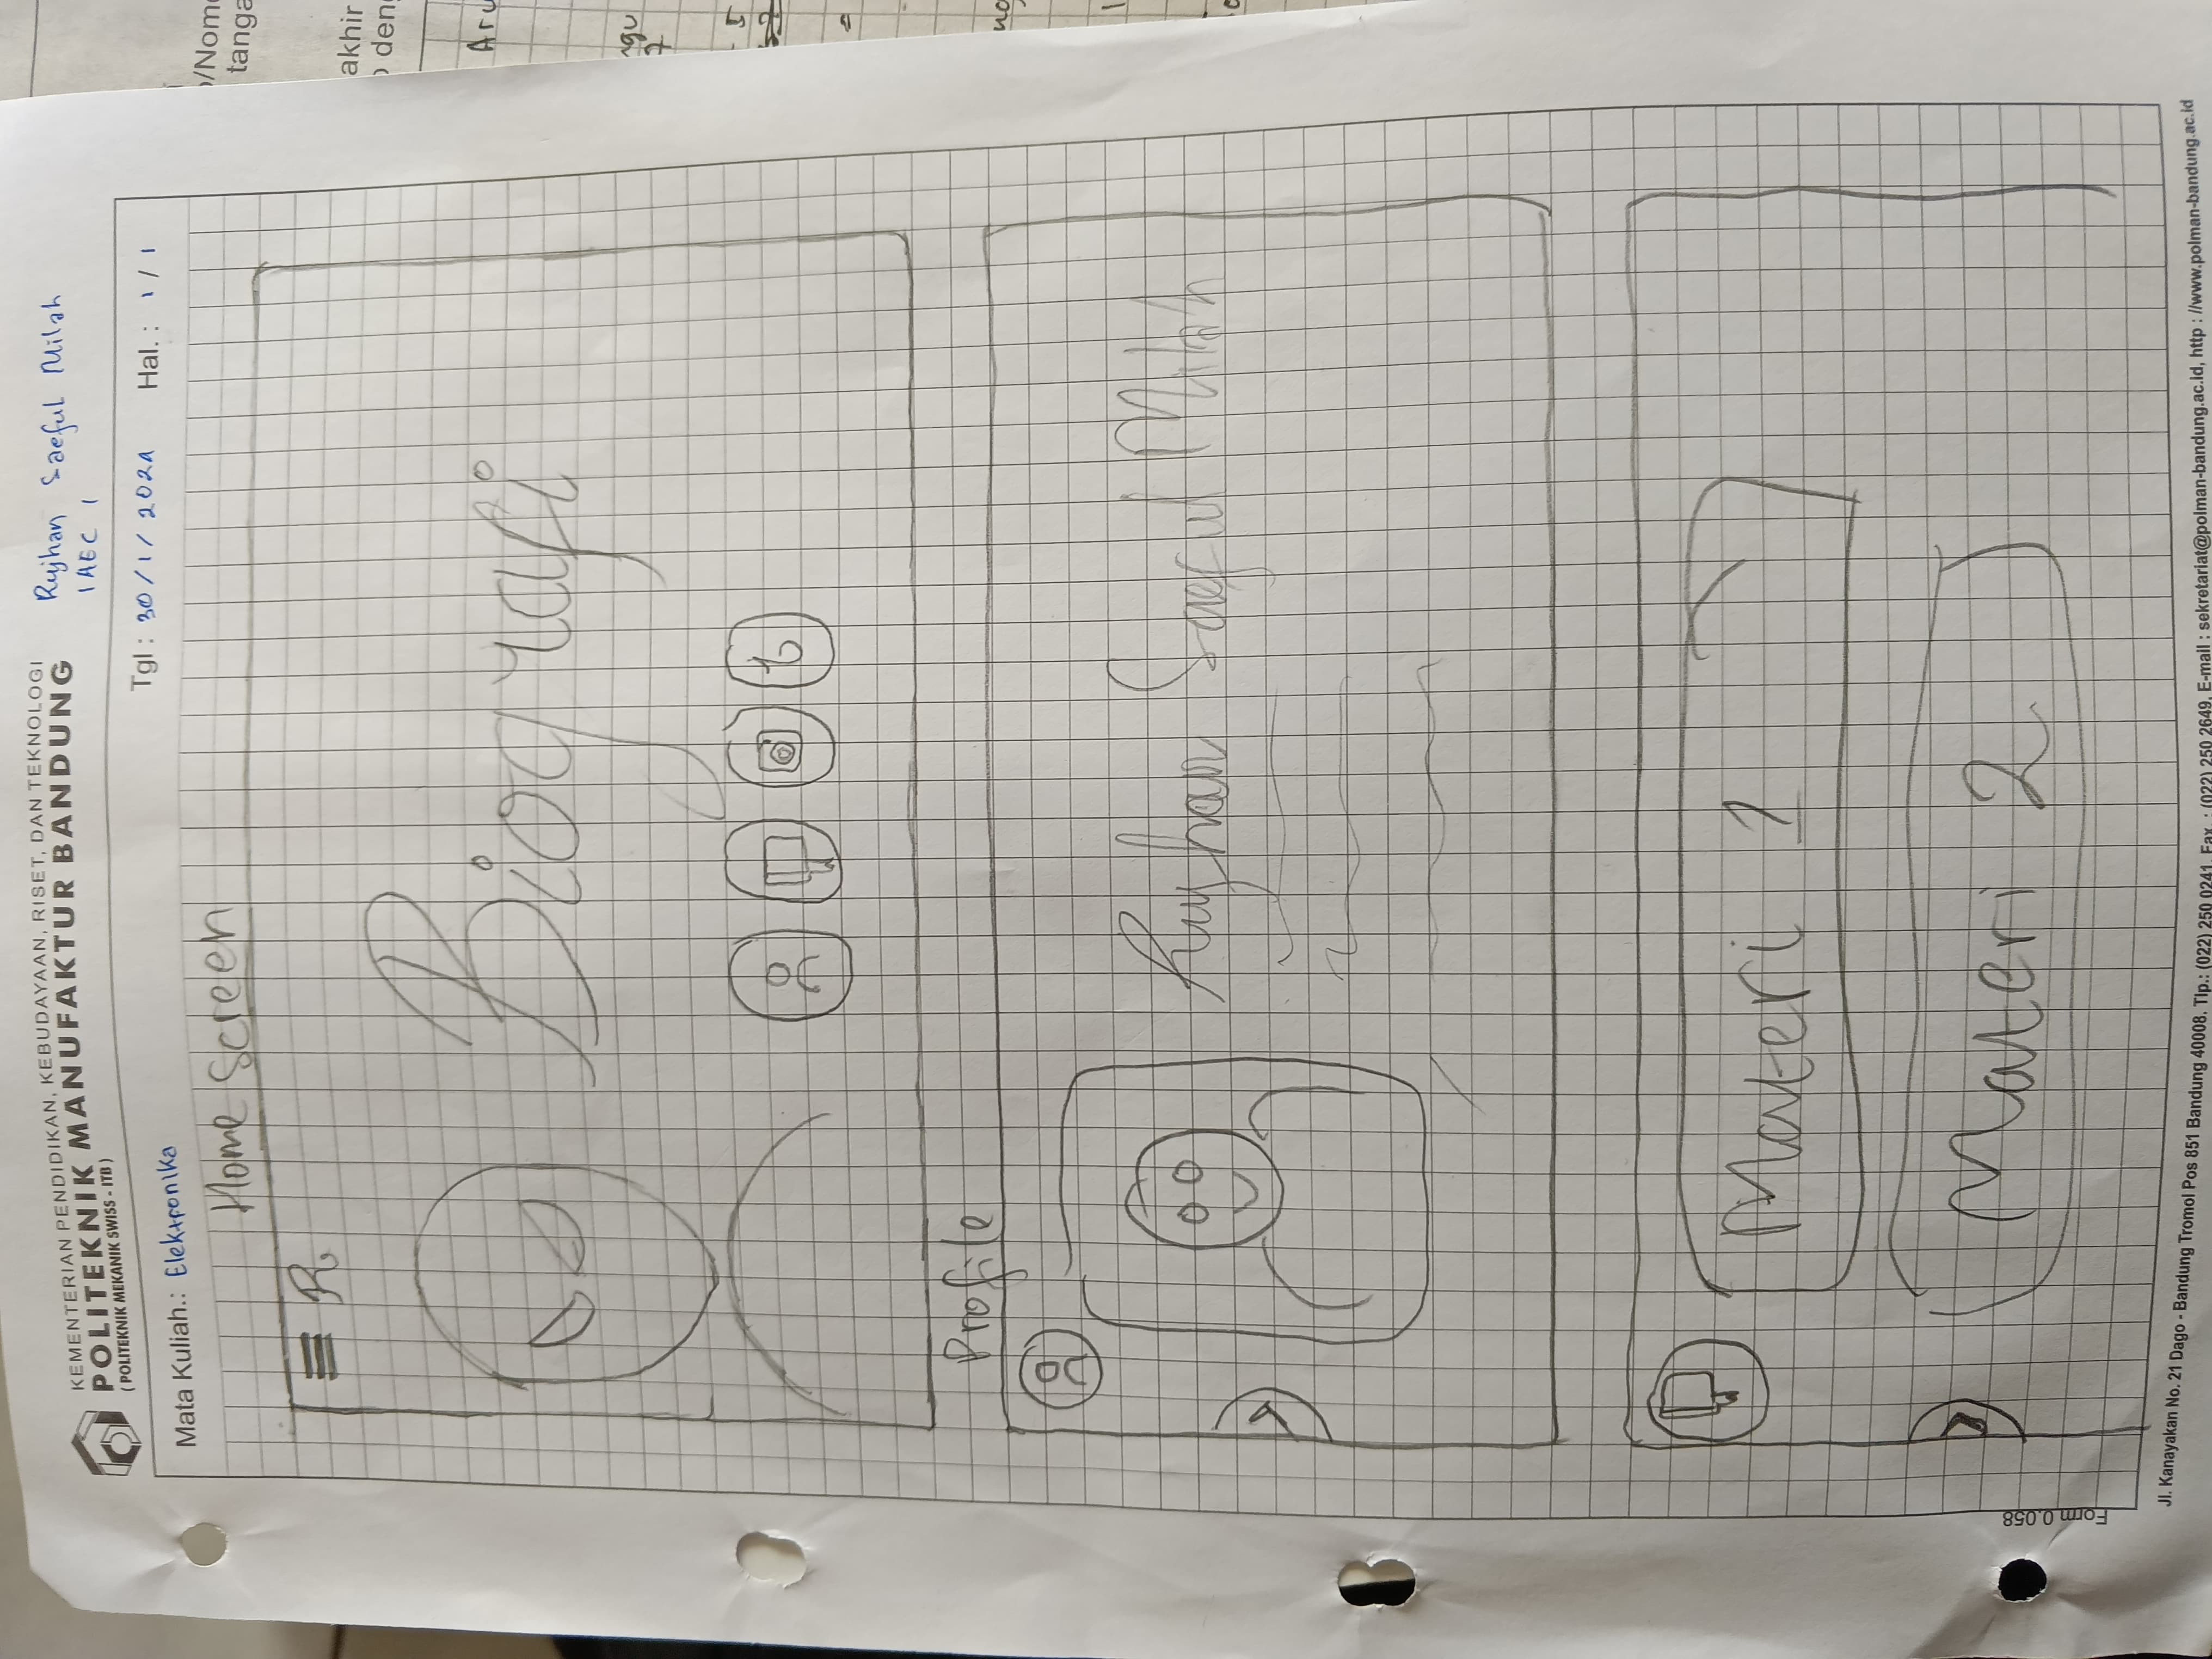 KEMENTERIAN PENDIDIKAN, KEBUDAYAAN, RISET, DAN TEKNOLOGI
POLITEKNIK MANUFAKTUR BANDUNG
( POLITEKNIK MEKANIK SWISS - ITB )
Rujhan Saeful Milah
1AEC 1
Mata Kuliah.: Elektronika
Tgl : 30/1/2024 Hal. : 1/1
Home Screen
R
Biografi
Profile
Rujhan Saeful Milah
Materi 1
Materi 2
Form 0.058
Jl. Kanayakan No. 21 Dago - Bandung Tromol Pos 851 Bandung 40008. Tlp.: (022) 250 0241. Fax. : (022) 250 2649. E-mail : sekretariat@polman-bandung.ac.id, http : //www.polman-bandung.ac.id
/Nom
tanga
akhir
den